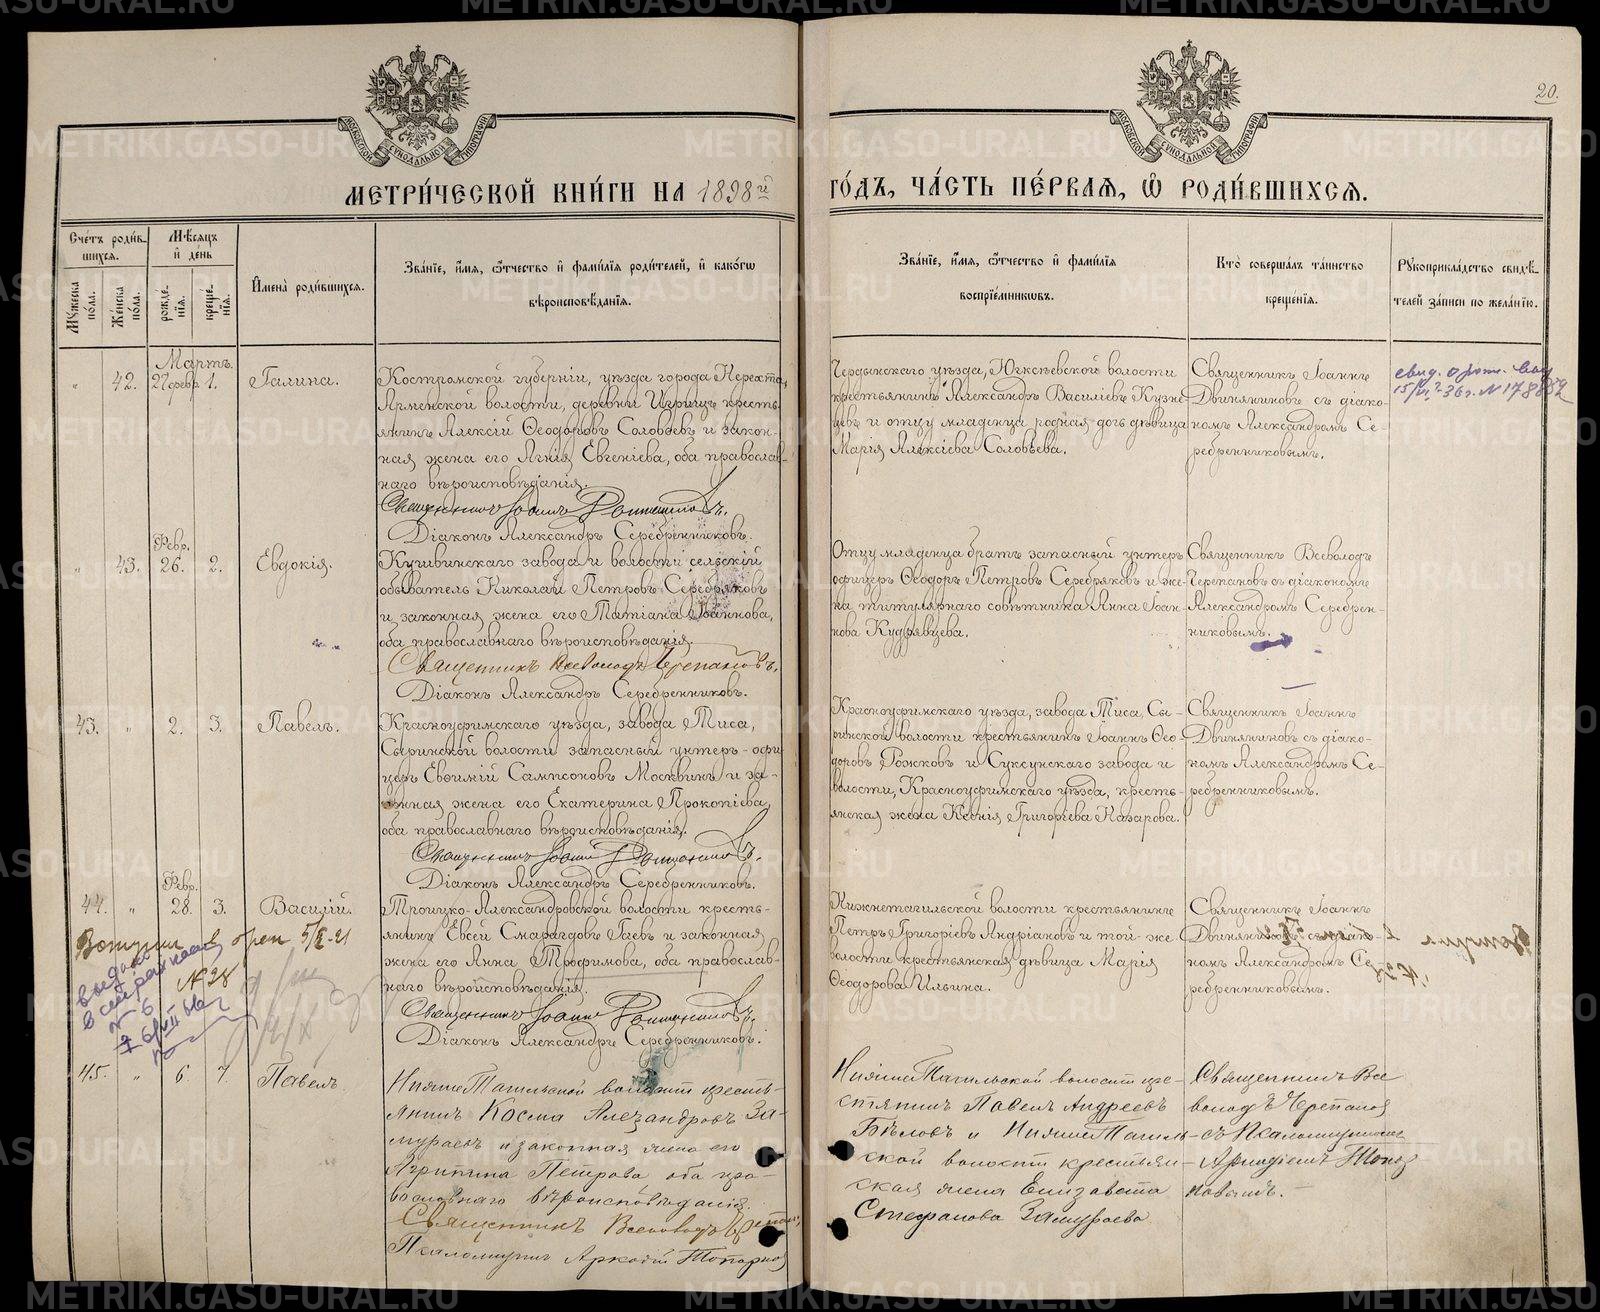 20.
МОСКОВСКОЙ СУНОДАЛЬНОЙ ТИПОГРАФИИ
МОСКОВСКОЙ СУНОДАЛЬНОЙ ТИПОГРАФИИ
МЕТРИ́ЧЕСКОЙ КНИ́ГИ НА 1898й ГО́ДЪ, ЧА́СТЬ ПЕ́РВАѦ, Ѽ РОДИ́ВШИХСѦ.
Сче́тъ роди́в-
шихся.
Мѣ́сяцъ
и де́нь
Му́жеска по́ла.
Же́нска по́ла.
рожде́-нїя.
креще́-нїя.
Имена̀ роди́вшихся.
Зва́нїе, и́мя, ѻ́тчество и фами́лїя роди́телей, и како́гѡ
вѣроисповѣ́данїя.
Зва́нїе, и́мя, ѻ́тчество и фами́лїя
воспрїе́мникѡвъ.
Кто̀ соверша́лъ та́инство
креще́нїя.
Рꙋкоприкла́дство свидѣ́-
телей за́писи по жела́нїю.
Мартъ.
" 42. 27 февр. 1. Галина.
Костромской губерніи, уѣзда города Нерехта,
Арменской волости, деревни Игрищъ кресть-
янинъ Алексій Ѳеодоровъ Соловьевъ и закон-
ная жена его Агнія Евгеніева, оба православ-
наго вѣроисповѣданія.
Священникъ Іоаннъ Двиняниновъ.
Діаконъ Александръ Серебренниковъ.
Чердынскаго уѣзда, Юксѣевской волости
крестьянинъ Александръ Василіевъ Кузне-
цовъ и отцу младенца родная дочь дѣвица
Марія Алексіева Соловьева.
Священникъ Іоаннъ
Двиняниновъ съ діако-
номъ Александромъ Се-
ребренниковымъ.
свид. о рожд.
Февр.
" 43. 26. 2. Евдокія.
Кушвинскаго завода и волости сельскій
обыватель Николай Петровъ Серебряковъ
и законная жена его Татіана Іоаннова,
оба православнаго вѣроисповѣданія.
Священникъ Всеволодъ Черепановъ.
Діаконъ Александръ Серебренниковъ.
Отцу младенца братъ запасный унтеръ
офицеръ Ѳеодоръ Петровъ Серебряковъ и же-
на титулярнаго совѣтника Анна Іоан-
нова Кудрявцева.
Священникъ Всеволодъ
Черепановъ съ діакономъ
Александромъ Серебрен-
никовымъ.
43. " 2. 3. Павелъ.
Красноуфимскаго уѣзда, завода Тиса,
Сыринской волости запасный унтеръ-офи-
церъ Евѳимій Сампсоновъ Москвинъ и за-
конная жена его Екатерина Прокопіева,
оба православнаго вѣроисповѣданія.
Священникъ Іоаннъ Двиняниновъ.
Діаконъ Александръ Серебренниковъ.
Красноуфимскаго уѣзда, завода Тиса, Сы-
ринской волости крестьянинъ Іоаннъ Ѳео-
доровъ Рожковъ и Суксунскаго завода и
волости, Красноуфимскаго уѣзда, кресть-
янская жена Ксенія Григорьева Назарова.
Священникъ Іоаннъ
Двиняниновъ съ діако-
номъ Александромъ Се-
ребренниковымъ.
Февр.
44. " 28. 3. Василій.
Троицко-Александровской волости кресть-
янинъ Евсей Смарагдовъ Гаевъ и законная
жена его Анна Трофимова, оба православ-
наго вѣроисповѣданія.
Священникъ Іоаннъ Двиняниновъ.
Діаконъ Александръ Серебренниковъ.
Нижнетагильской волости крестьянинъ
Петръ Григоріевъ Андріановъ и той-же
волости крестьянская дѣвица Марія
Ѳеодорова Ильина.
Священникъ Іоаннъ
Двиняниновъ съ діако-
номъ Александромъ Се-
ребренниковымъ.
Вступил в брак 5/X-21
№ 28
45. " 6. 7. Павелъ.
НижнеТагильской волости кресть-
янинъ Косма Александровъ За-
мураевъ и законная жена его
Агрипина Петрова, оба пра-
вославнаго вѣроисповѣданія.
Священникъ Всеволодъ
Псаломщикъ Аркадій Топорков
НижнеТагильской волости кре-
стянинъ Павелъ Андреевъ
Бѣловъ и НижнеТагиль-
ской волости крестьян-
ская жена Елизавета
Стефанова Замураева
Священникъ Все
володъ Черепанов
съ Псаломщикомъ
Аркадіемъ Топор
ковымъ.
METRIKI.GASO-URAL.RU